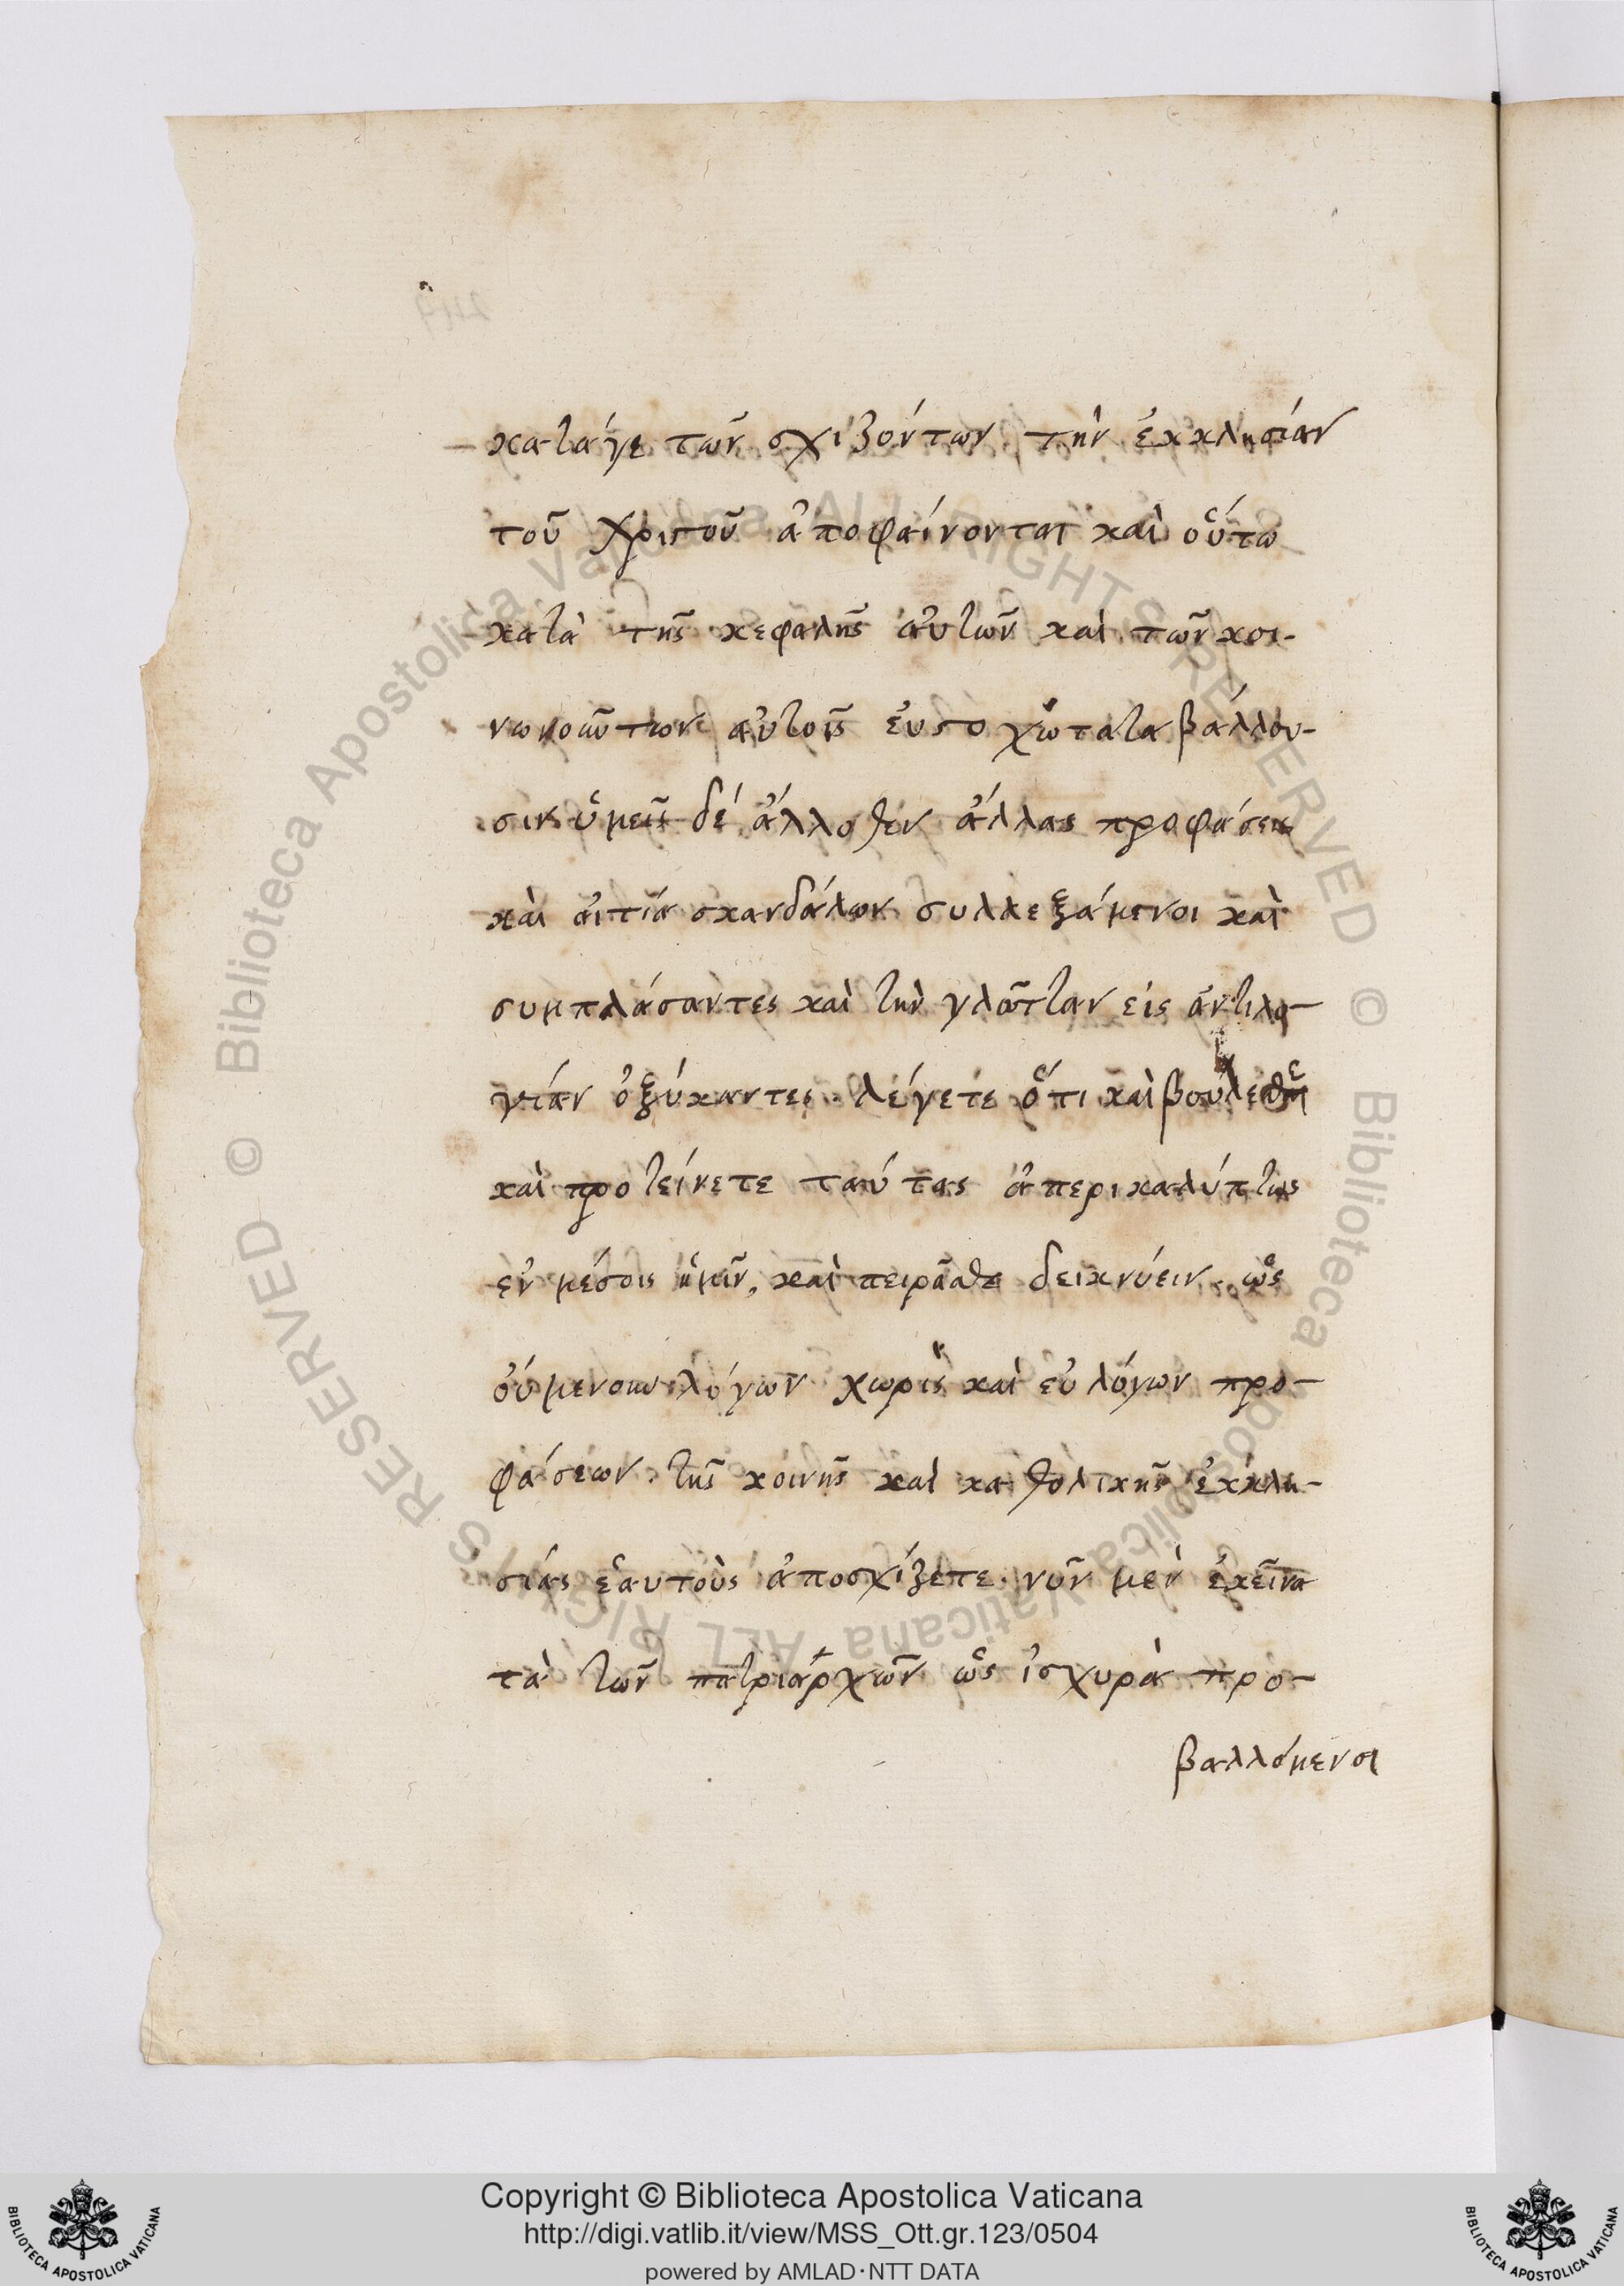 καταγε τῶν σχιζόντων την ἐκκλησίαν
τοῦ Χριστοῦ ἀποφαίνονται καὶ οὕτω
κατὰ τῆς κεφαλῆς αὐτῶν καὶ τῶν κοι-
νωνούντων αὐτοῖς εὐστοχώτατα βάλλου-
σιν ὑμεῖς δέ ἄλλοθεν ἄλλας προφάσεις
καὶ αἰτία σκανδάλων συλλεξάμενοι καὶ
συμπλάσαντες καὶ τὴν γλῶτταν εἰς ἀντιλο-
γίαν ὀξύναντες λέγετε ὅτι καὶ
καὶ προτείνετε ταύτας ἀπερικαλύπτως
ἐν μέσοις ἡμῖν, καὶ πειρᾶσθε δεικνύειν ὡς
οὐμενουν λόγων χωρὶς καὶ εὐλόγων προ-
φάσεων τῆς κοινῆς καὶ καθολικῆς ἐκκλη-
σίας ἑαυτοὺς ἀποσχίζετε· νῦν μὲν ἐκεῖνα
τὰ τῶν πατριαρχῶν ὡς ἰσχυρὰ προ-
βαλλόμενοι
Copyright © Biblioteca Apostolica Vaticana
http://digi.vatlib.it/view/MSS_Ott.gr.123/0504
powered by AMLAD·NTT DATA
BIBLIOTECA APOSTOLICA VATICANA
BIBLIOTECA APOSTOLICA VATICANA
© Biblioteca Apostolica Vaticana ALL RIGHTS RESERVED © Biblioteca Apostolica Vaticana ALL RIGHTS RESERVED